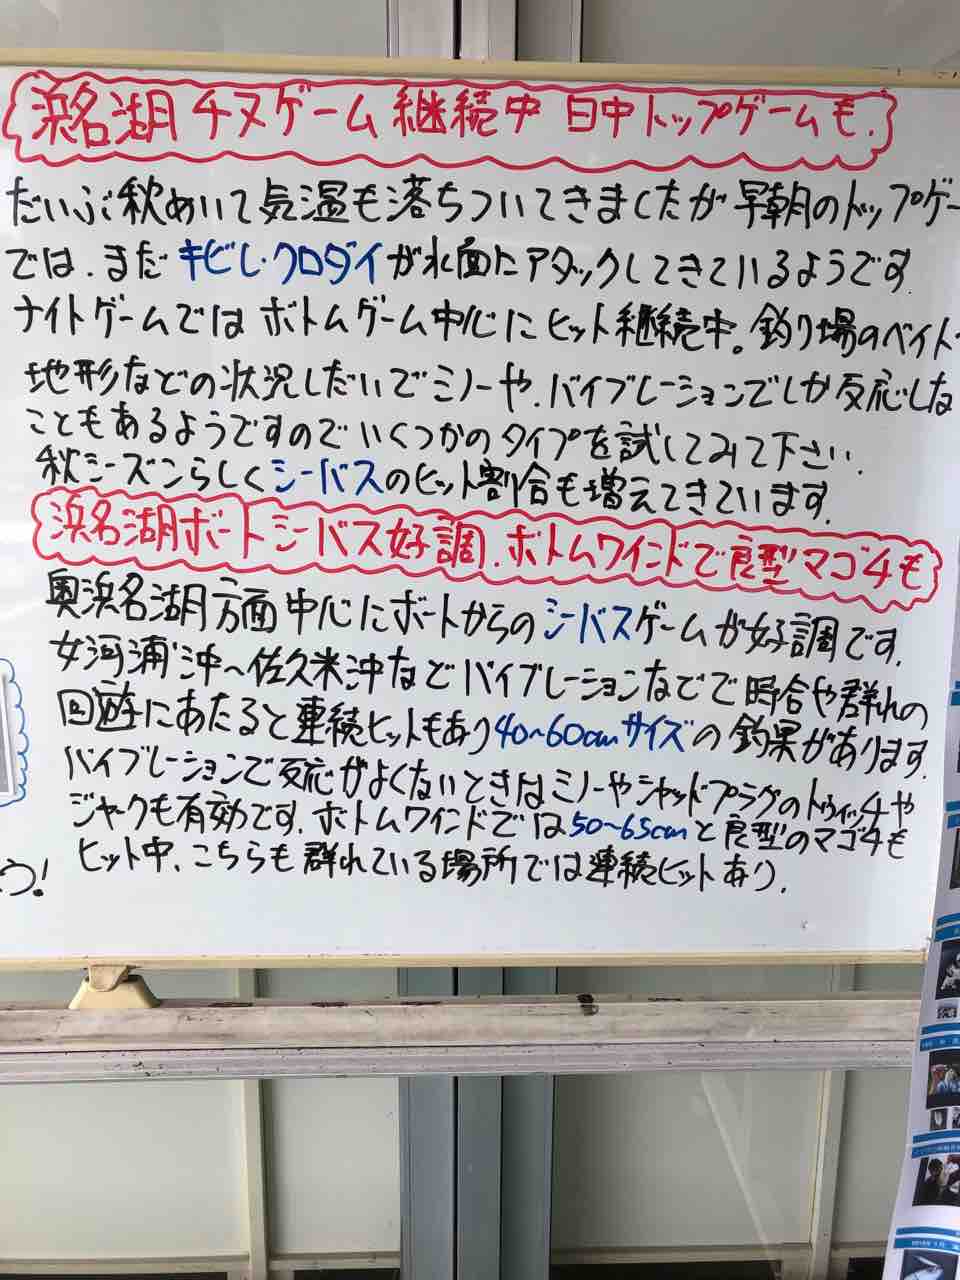 浜名湖チヌゲーム継続中 日中トップゲームも.
だいぶ秋めいて気温も落ちついてきましたが早朝のトップゲー
では、まだキビレ・クロダイが水面にアタックしてきているようです.
ナイトゲームではボトムゲーム中心にヒット継続中。釣り場のベイト
地形などの状況しだいでミノーや、バイブレーションでしか反応しな
こともあるようですのでいくつかのタイプを試してみて下さい.
秋シーズンらしくシーバスのヒット割合も増えてきています.
浜名湖ボートシーバス好調.ボトムワインドで良型マゴチも
奥浜名湖方面中心にボートからのシーバスゲームが好調です.
女河浦沖〜佐久米沖などバイブレーションなどで時合や群れの
回遊にあたると連続ヒットもあり40〜60cmサイズの釣果があります.
バイブレーションで反応がよくないときはミノーやシャッドプラグのトゥイッチや
ジャークも有効です.ボトムワインドでは50〜65cmと良型のマゴチも
ヒット中、こちらも群れている場所では連続ヒットあり.
う!